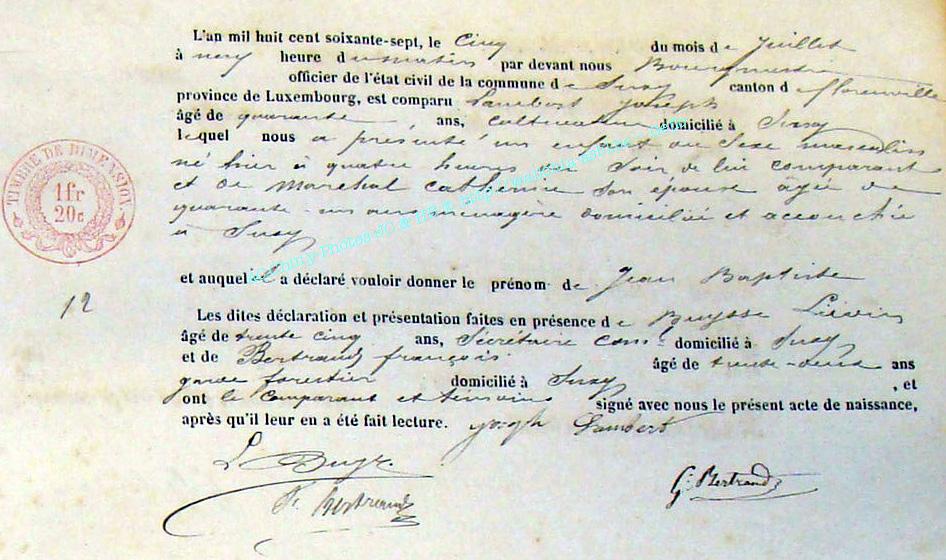 L'an mil huit cent soixante-sept, le Cinq du mois de Juillet
à neuf heure du matin par devant nous Bourgmestre
officier de l'état civil de la commune de Suxy canton de florenville
province de Luxembourg, est comparu Lambert Joseph
âgé de quarante ans, cultivateur domicilié à Suxy
lequel nous a présenté un enfant du Sexe masculin
né hier à quatre heure du Soir de lui comparant
et de Maréchal Cathérine Son épouse âgée de
quarante-un ans ménagère domiciliée et accouchée
à Suxy
et auquel il a déclaré vouloir donner le prénom de Jean Baptiste
Les dites déclaration et présentation faites en présence de Buysse Liévin
âgé de trente cinq ans, Sécrétaire Comal domicilié à Suxy
et de Bertrand françois âgé de trente-deux ans
garde forestier domicilié à Suxy , et
ont le Comparant et témoins signé avec nous le présent acte de naissance,
après qu'il leur en a été fait lecture. Joseph Lambert
L. Buysse
Fs Bertrand
G. Bertrand
12
TIMBRE DE DIMENSION
1fr
20c